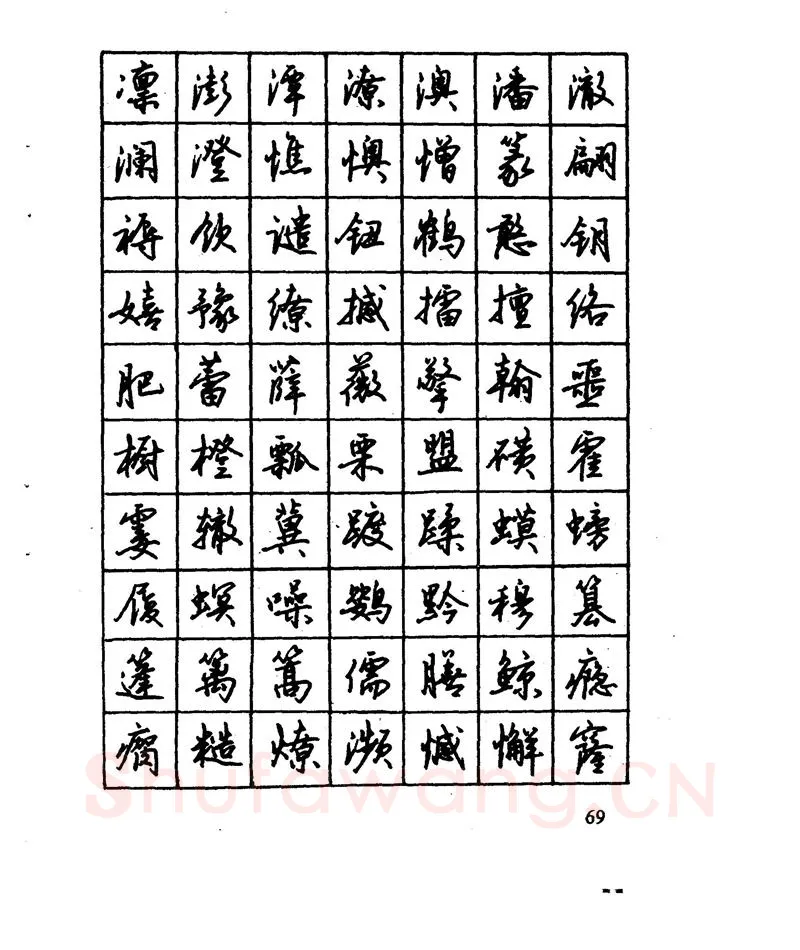 凛 澎 潭 潦 澳 潘 澈
澜 澄 憔 懊 憎 篆 翩
褥 饮 谴 钮 鹤 憨 钥
嬉 豫 缭 撼 擂 擅 络
肥 蕾 薛 薇 擎 翰 噩
橱 橙 瓢 栗 盟 磺 霍
霎 辙 冀 踱 蹂 蟆 螃
履 螟 噪 鹦 黔 穆 篡
篷 篱 篙 儒 膳 鲸 瘾
瘸 糙 燎 濒 憾 懈 窿
Shufawang.CN
69